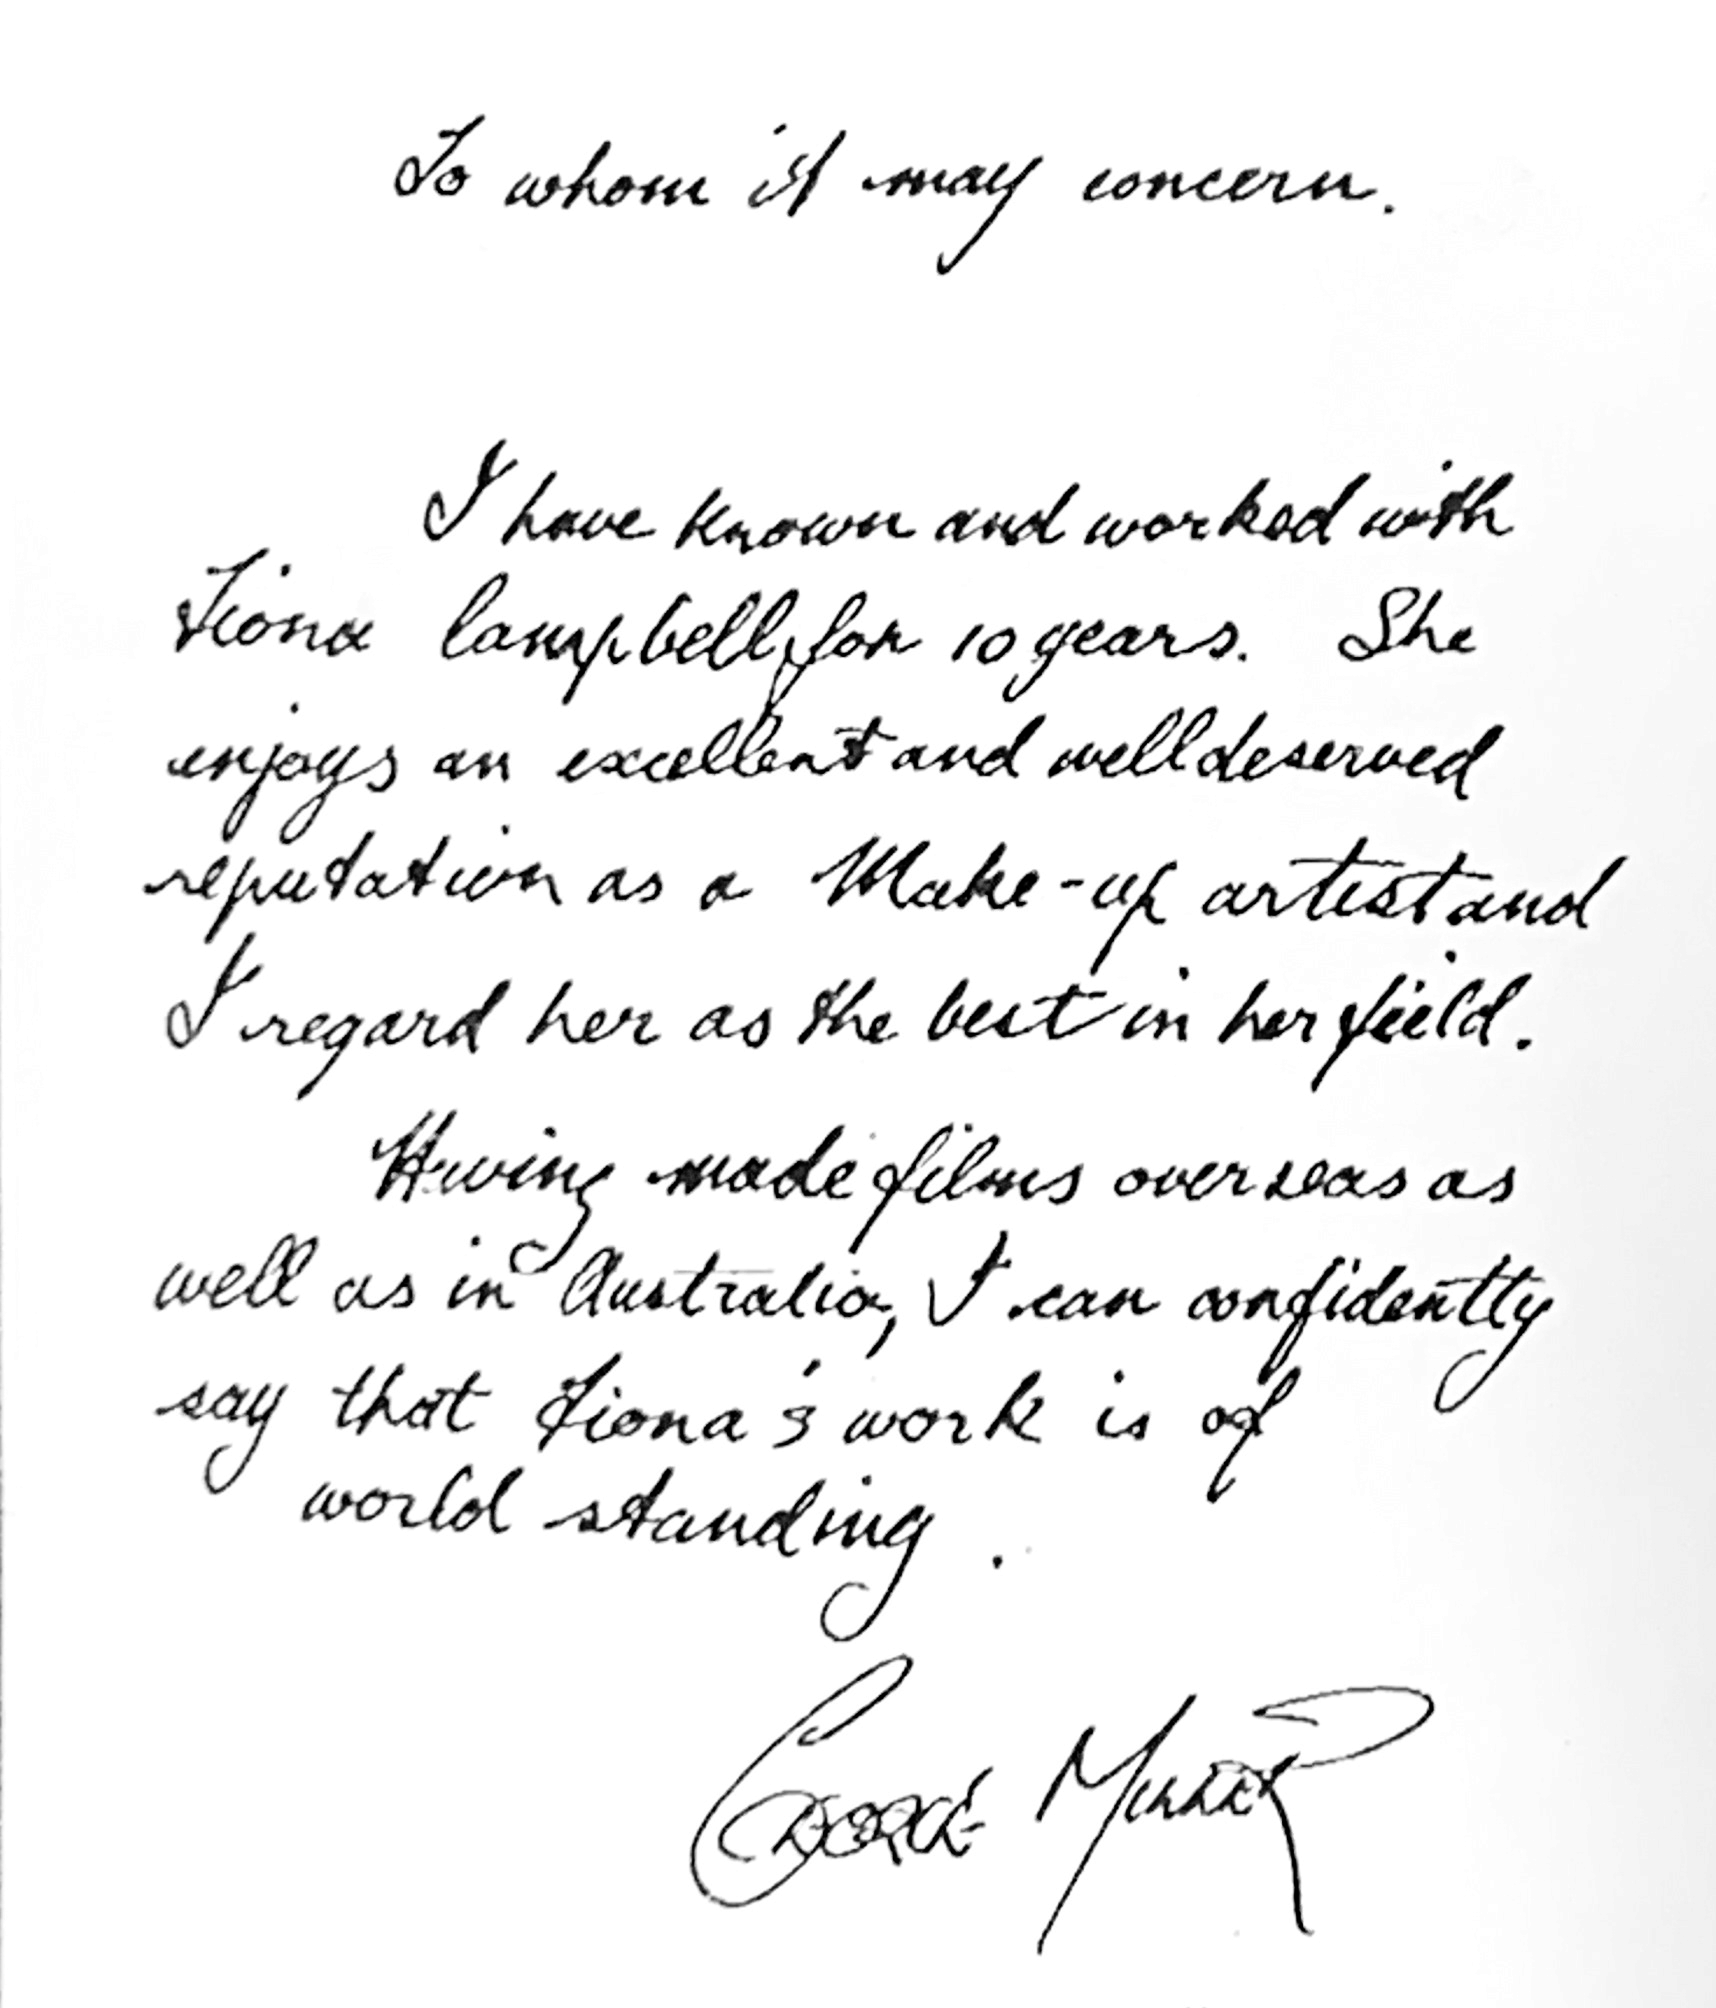 To whom it may concern.
I have known and worked with
Fiona Campbell for 10 years. She
enjoys an excellent and well deserved
reputation as a Make-up artist and
I regard her as the best in her field.
Having made films overseas as
well as in Australia, I can confidently
say that Fiona's work is of
world standing.
George Miller